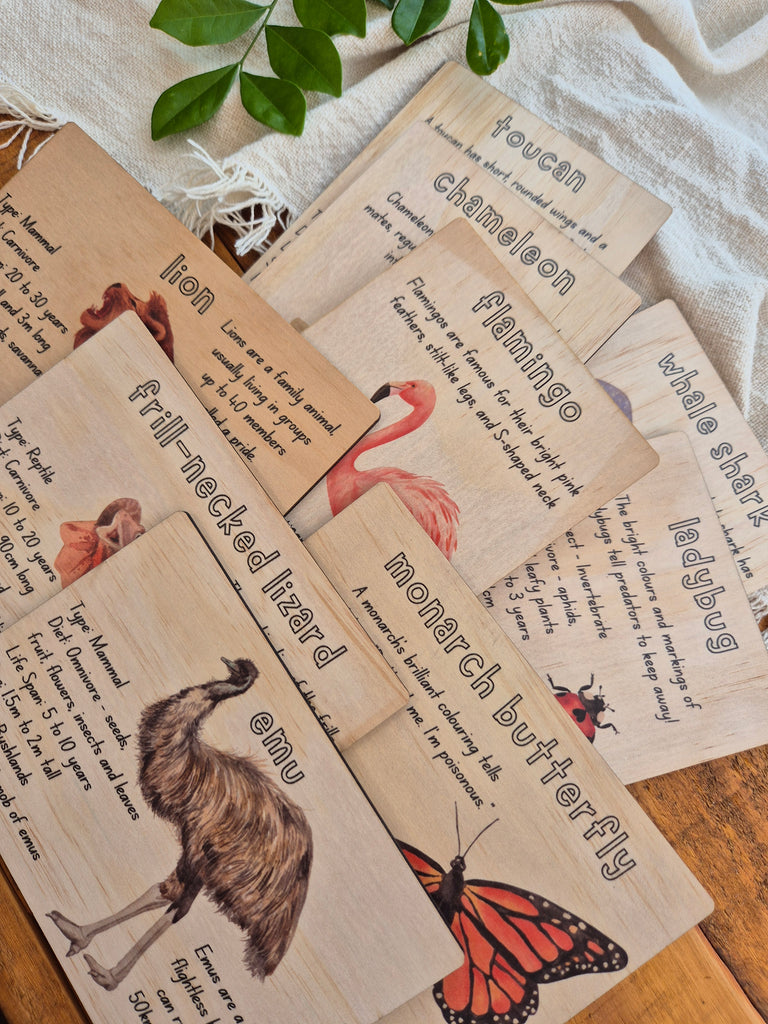 toucan
A toucan has short, rounded wings and a
chameleon
Chameleon
mates, regu
lion
Type: Mammal
Carnivore
20 to 30 years
and 3m long
savanna
Lions are a family animal,
usually living in groups
up to 40 members
a pride
flamingo
Flamingos are famous for their bright pink
feathers, stilt-like legs, and S-shaped neck
whale shark
shark has
ladybug
The bright colours and markings of
tell predators to keep away!
Invertebrate
aphids,
leafy plants
to 3 years
frill-necked lizard
Type: Reptile
Carnivore
10 to 20 years
90cm long
monarch butterfly
A monarch's brilliant colouring tells
me. I'm poisonous."
emu
Type: Mammal
Diet: Omnivore - seeds,
fruit, flowers, insects and leaves
Life Span: 5 to 10 years
1.5m to 2m tall
Bushlands
mob of emus
Emus are a
flightless
can r
50k